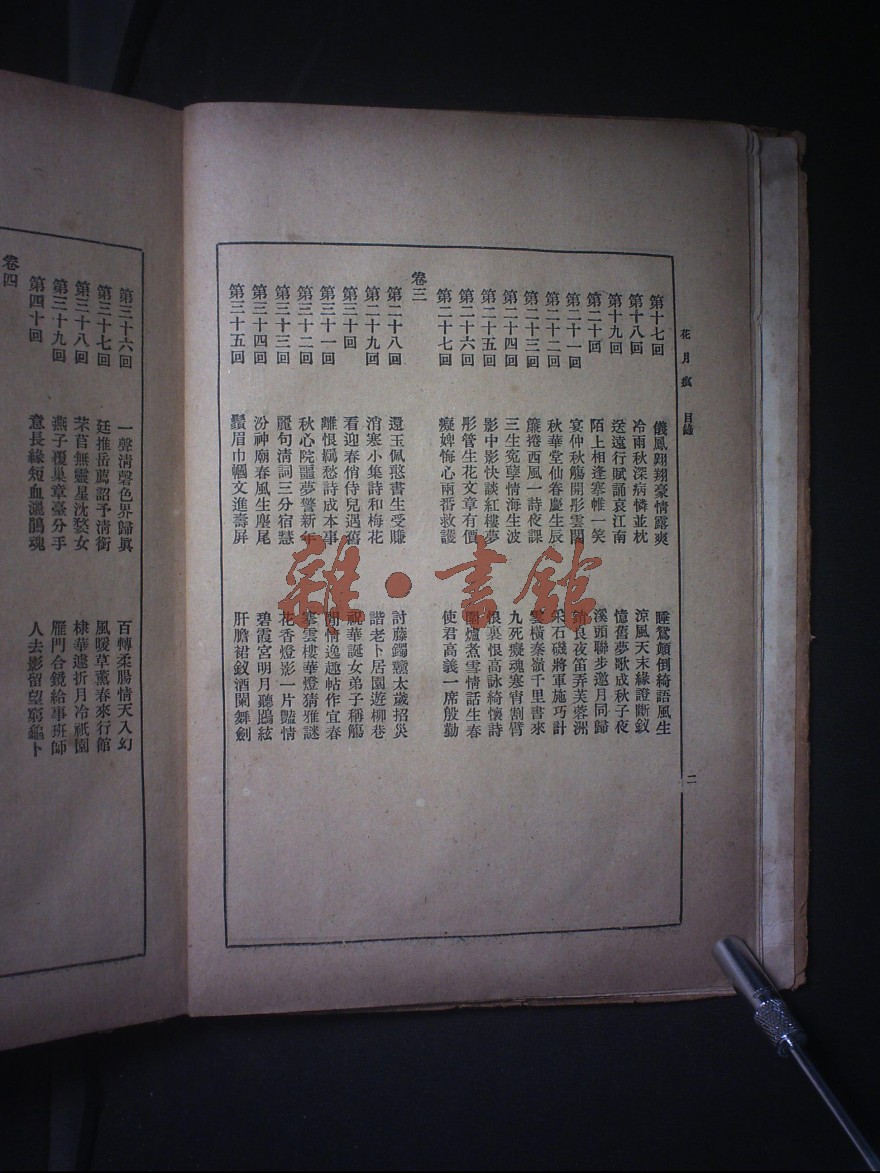 花月痕 目錄
第十七回 儀鳳翱翔豪情露爽 睡鴛顛倒綺語風生
第十八回 冷雨秋深病憐並枕 涼風天末緣證斷釵
第十九回 送遠行賦誦哀江南 憶舊夢歌成秋子夜
第二十回 陌上相逢搴帷一笑 溪頭聯步邀月同歸
第二十一回 宴仲秋觴開彤雲閣 銷良夜笛弄芙蓉洲
第二十二回 秋華堂仙眷慶生辰 采石磯將軍施巧計
第二十三回 簾捲西風一詩夜課 雲橫秦嶺千里書來
第二十四回 三生冤孽情海生波 九死癡魂寒宵割臂
第二十五回 影中影快談紅樓夢 恨裏恨高詠綺懷詩
第二十六回 彤管生花文章有價 圍爐煮雪情話生春
第二十七回 癡婢悔心兩番救護 使君高義一席殷勤
卷三
第二十八回 還玉佩憨書生受賺 討藤鐲戇太歲招災
第二十九回 消寒小集詩和梅花 諧老卜居園遊柳巷
第三十回 看迎春俏侍兒遇舊 祝華誕女弟子稱觴
第三十一回 離恨羈愁詩成本事 閒情逸趣帖作宜春
第三十二回 秋心院噩夢警新年 搴雲樓華燈猜雅謎
第三十三回 麗句清詞三分宿慧 花香燈影一片豔情
第三十四回 汾神廟春風生麈尾 碧霞宮明月聽鵾絃
第三十五回 鬚眉巾幗文進壽屏 肝膽裙釵酒闌舞劍
二
第三十六回 一聲清磬色界歸真 百轉柔腸情天入幻
第三十七回 廷推岳薦詔予清銜 風暖草薰春來行館
第三十八回 芣苢無靈星沈婺女 棣華遽折月冷祇園
第三十九回 燕子覆巢章臺分手 雁門合鏡給事班師
第四十回 意長緣短血灑鵑魂 人去影留望窮龜卜
卷四
雜·書館